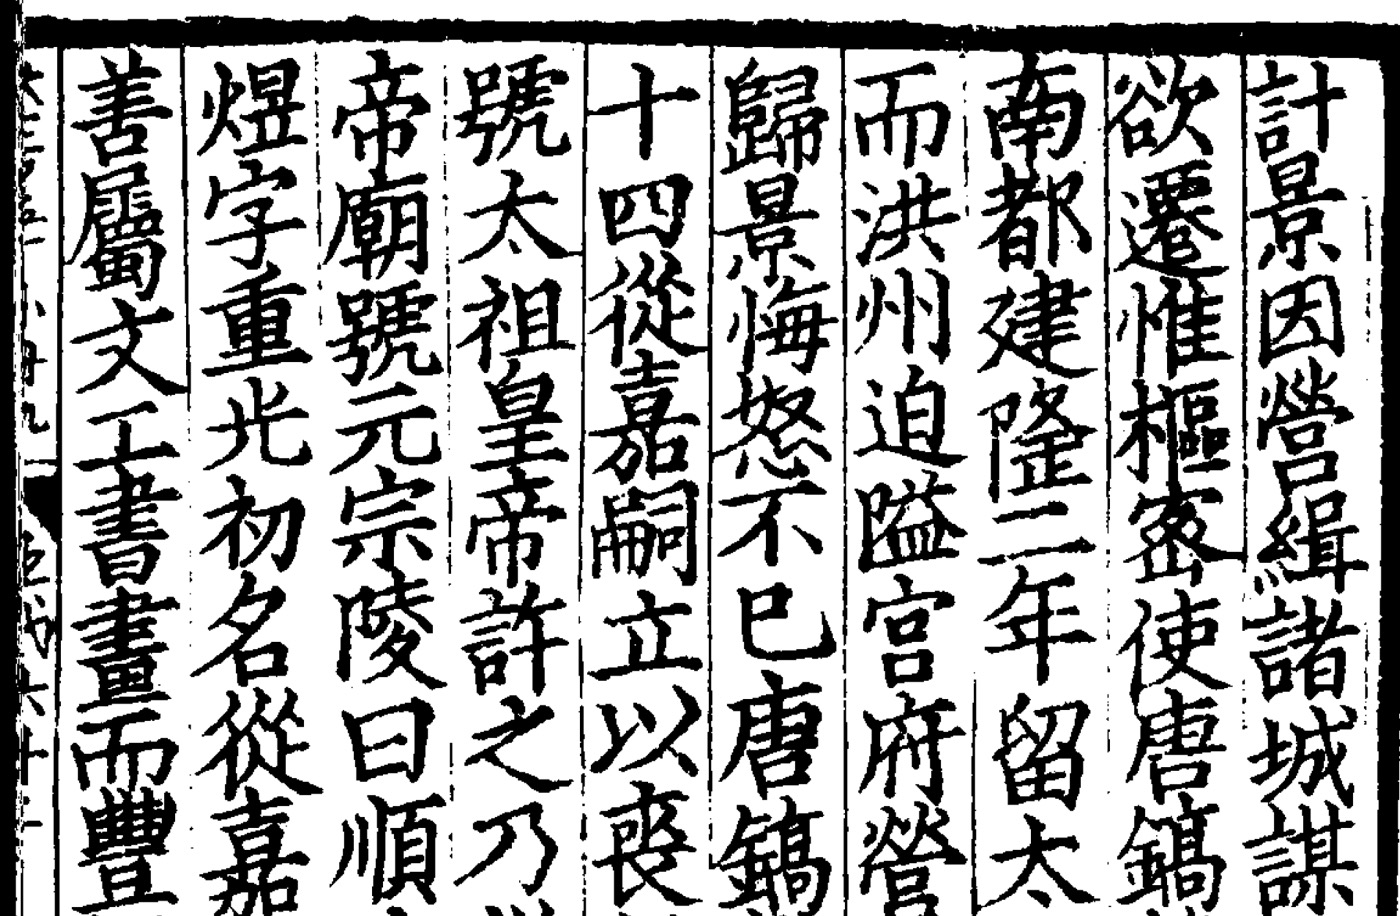 計景因營緝諸城謀
欲遷惟樞密使唐鎬
南都建隆二年留太
而洪州迫隘宮府營
歸景悔怒不已唐鎬
十四從嘉嗣立以喪
號太祖皇帝許之乃
帝廟號元宗陵曰順
煜字重光初名從嘉
善屬文工書畫而豐